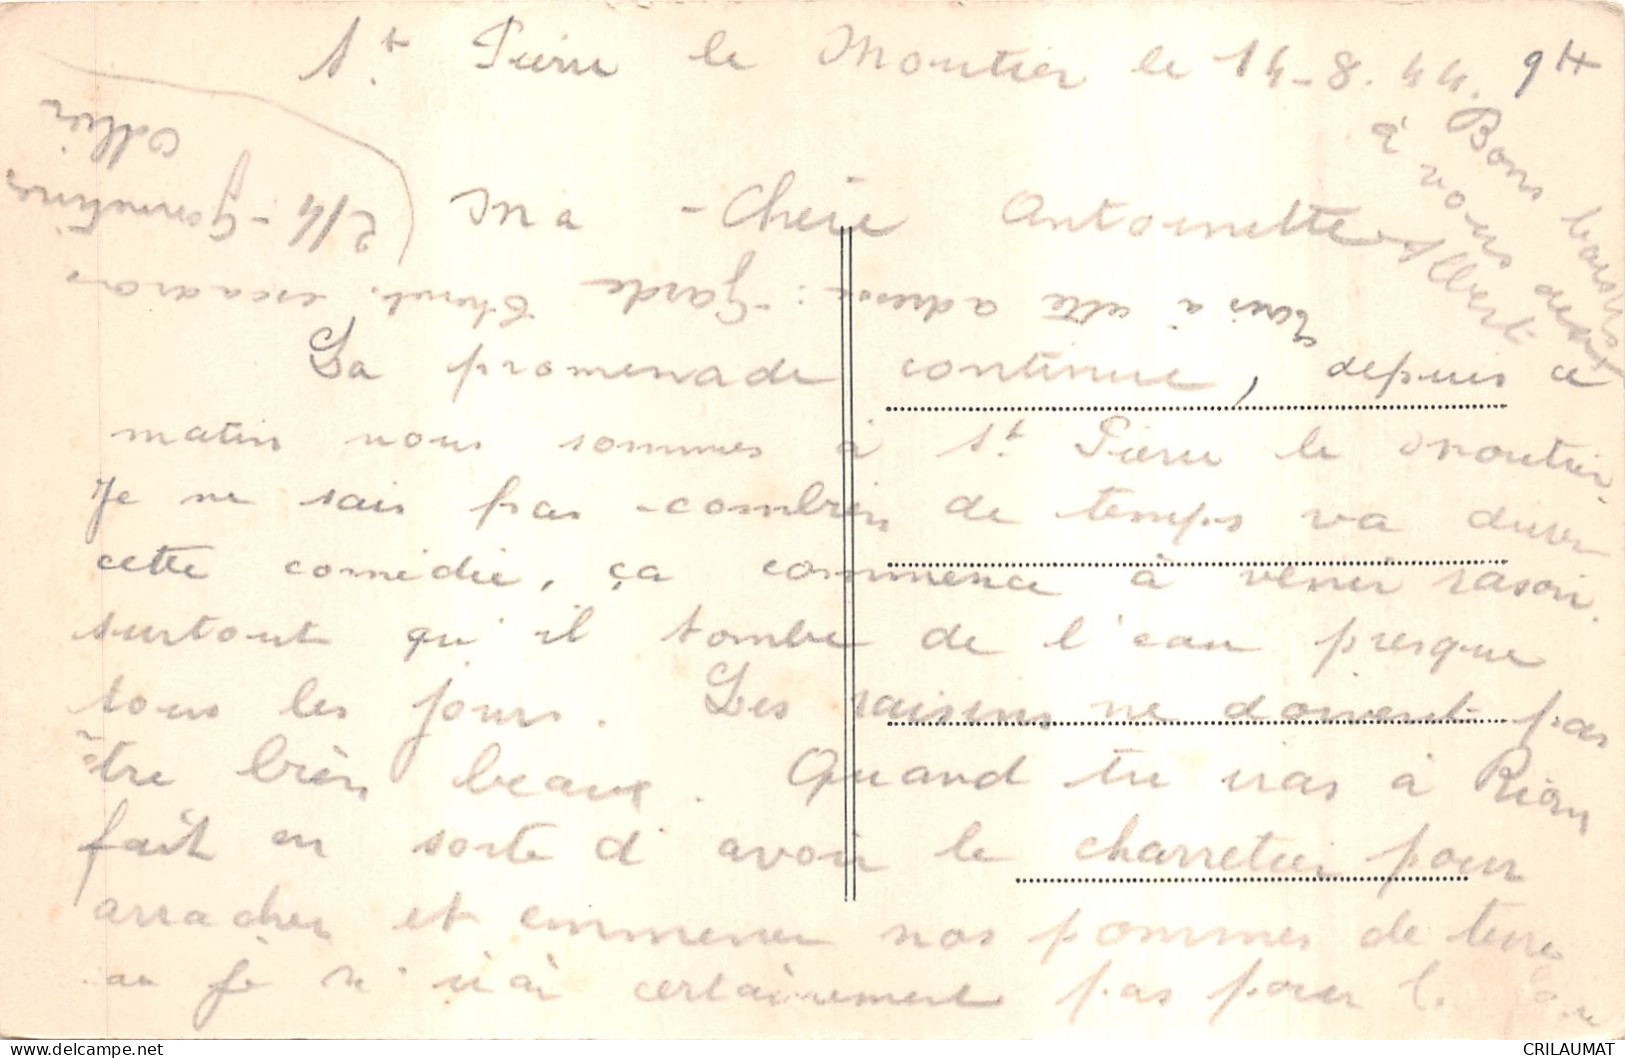 St Pierre le Moutier le 14-8.44. 9H
Ma Chère Antoinette
La promenade continue, depuis ce
matin nous sommes à St Pierre le Moutier.
Je ne sais pas combien de temps va durer
cette comédie, ça commence à venir rasoir.
surtout qu'il tombe de l'eau presque
tous les jours. Les raisins ne doivent pas
être bien beaux. Quand tu iras à Riom
fait en sorte d'avoir le charretier pour
arracher et emmener nos pommes de terre
car je n'irai certainement pas pour le faire
Bons baisers
à vous deux
Albert
à cette adresse: Garde Albert. escadron
2/4 - Gannat
Allier
CRILAUMAT